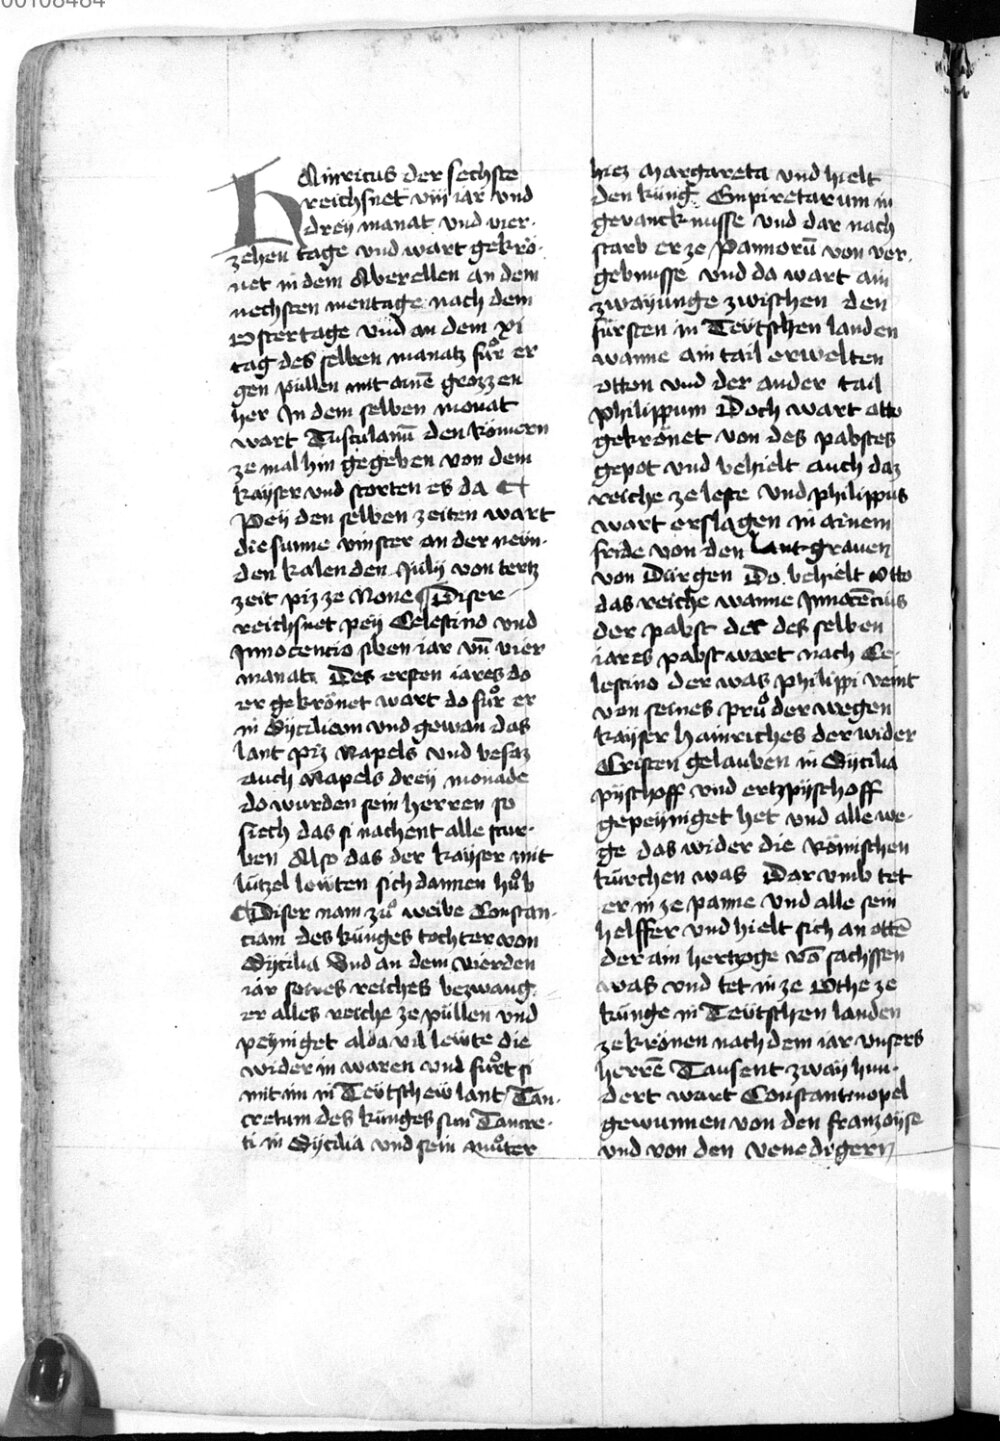 00108484
HAinricus der sechste
reichsnet viij iar vnd
dreÿ manat vnd vier-
zehen tage vnd wart gekrö-
net in dem Aberellen an dem
nechsten mentage nach dem
Ostertage vnd an dem xi
tag des selben manatz fuͦr er
gen püllen mit ainē grozzen
her In dem selben monat
wart Tusculanū den Römern
ze mal hin gegeben von dem
kaÿser vnd storten es da
Peÿ den selben zeiten wart
die sunne vinster an der neün-
den kalenden Julij von tertz
zeit piz ze None ¶ Diser
reichsnet peÿ Celestino vnd
Innocencio siben iar vn̄ vier
manat Des ersten iares do
er gekrönet wart do fuͦr er
in Sÿciliam vnd gewan das
lant piz Napels vnd besaz
auch Napels dreÿ monade
do wurden sein herren so
siech das si nachent alle stur-
ben Also das der kaÿser mit
lützel lewten sich dannen huͦb
¶ Diser nam zuͦ weibe Constan-
ciam des künges tochter von
Sÿcilia Vnd an dem vierden
iar seines reiches bezwang
er alles reiche ze püllen vnd
peÿniget alda vil lewte die
wider in waren vnd fuͦrt si
mit im in Teütschew lant Tan-
cretum des künges sun Tancre-
ti in Sÿcilia vnd sein muͦter
hiez Margareta vnd hielt
den küng Empiretarum in
gevancknusse vnd dar nach
starb er ze Pannorū von ver-
gebnusse vnd da wart ain
zwaÿunge zwischen den
fürsten in Teütschen landen
wanne ain tail erwelten
otton vnd der ander tail
philippum Doch wart otto
gekrönet von des pabstes
gepot vnd behielt auch daz
reiche ze leste Vnd philippus
wart erslagen in ainem
fride von den lantgrauen
von Dürgen Do behielt Otto
das reiche wanne Innocēcius
der pabst der des selben
iares pabst wart nach Ce-
lestino der was philippi veint
von seines pruͦder wegen
kaÿser hainriches der wider
Cristen gelauben in Sÿcilia
pÿschoff vnd ertzpÿschoff
gepeÿniget het vnd alle we-
ge das wider die Römischen
kürchen was Dar vmb tet
er in ze panne vnd alle sein
helffer vnd hielt sich an ottē
der ain hertzoge vō sachssen
was vnd tet in ze Othe ze
künge in Teütschen landen
ze krönen nach dem iar vnsers
herrē Tausent zwaÿ hun-
dert wart Constantinopel
gewunnen von den franzoÿse
vnd von den venedigern